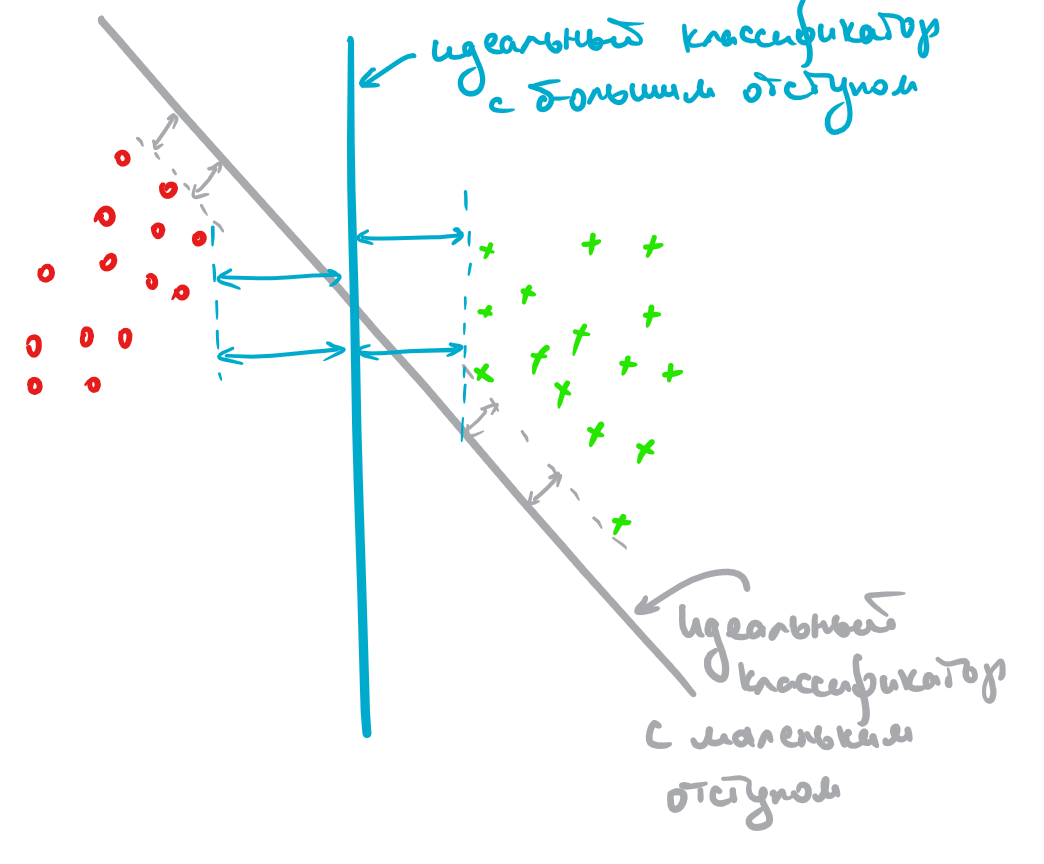 идеальный классификатор
с большим отступом
идеальный
классификатор
с маленьким
отступом